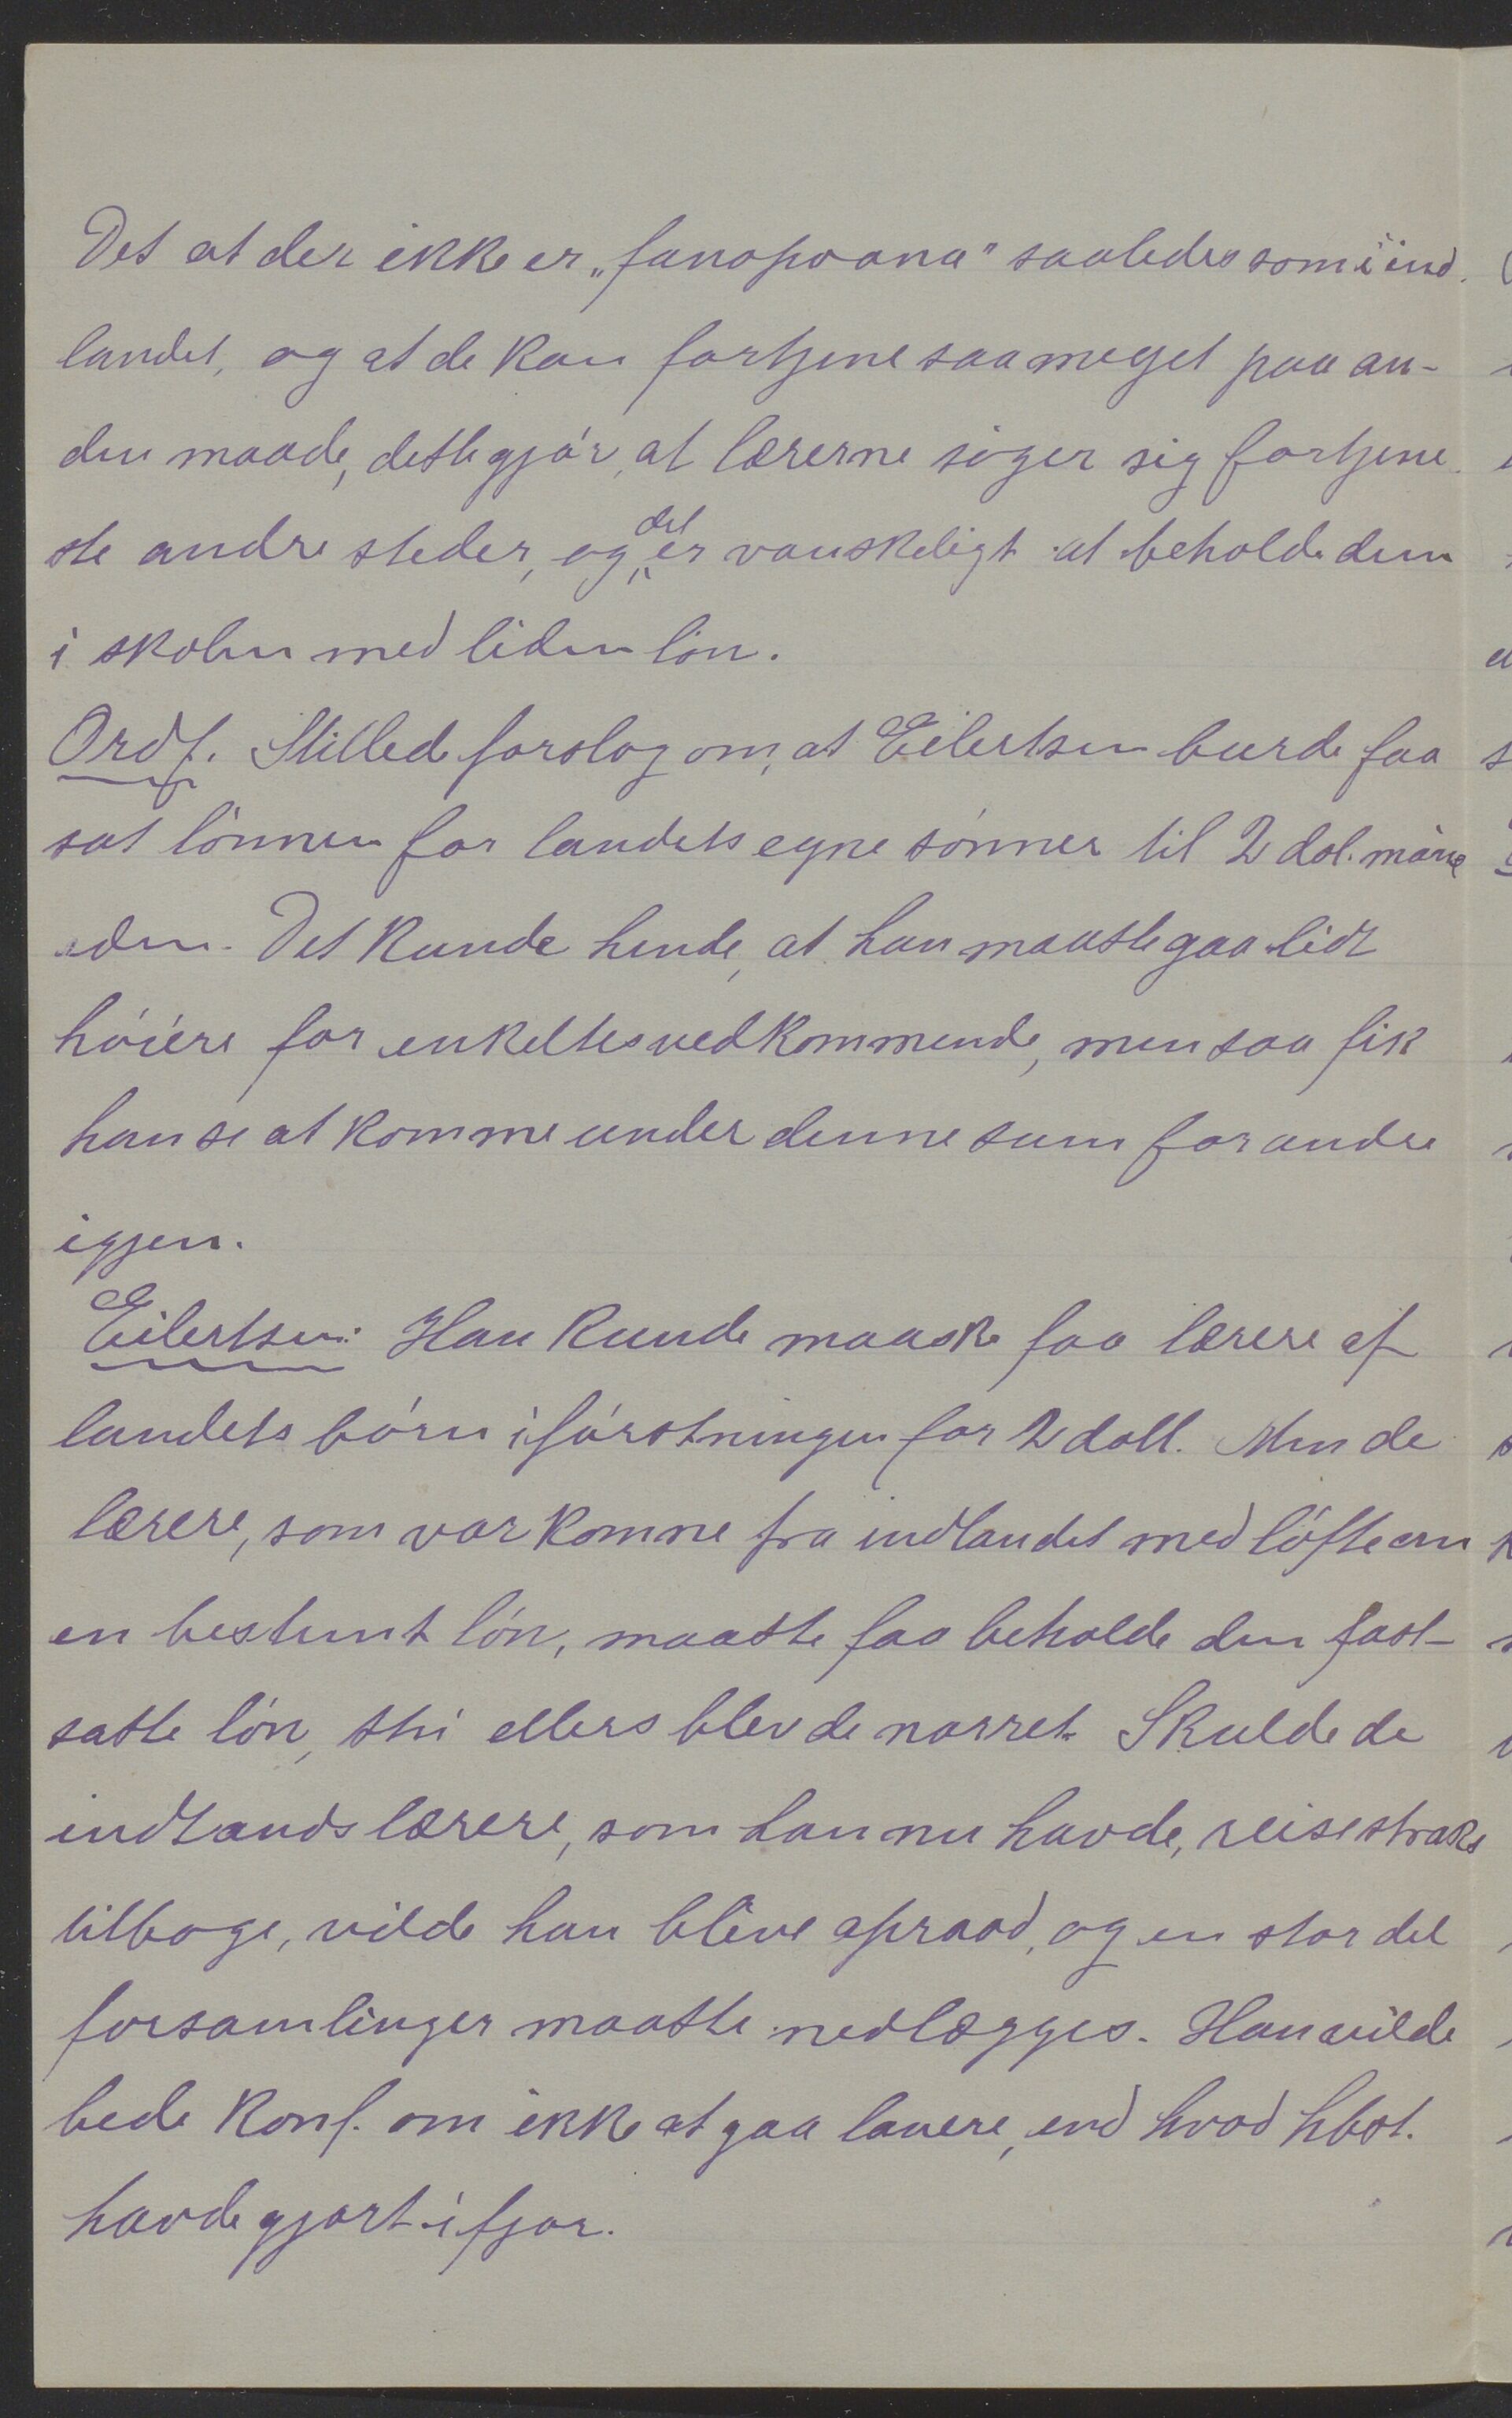 Det at der ikke er „fanopoana" saaledes som i ind-
landet, og at de kan fortjene saa meget paa an-
den maade, dette gjör, at lærerne söger sig fortjene-
ste andre steder, og det er vanskeligt at beholde dem
i skolen med liden lön.
Ordf. Stillede forslag om, at Eilertsen burde faa
sat lönnen for landets egne sönner til 2 dol. måne
eden. Det kunde hende, at han maatte gaa lidt
höiere for enkeltes vedkommende, men saa fik
han se at komme under denne sum for andre
igjen.
Eilertsen: Han kunde maaske faa lærere af
landets börn i förstningen for 2 doll. Men de
lærere, som var komne fra indlandet med löfte om
en bestemt lön, maatte faa beholde den fast-
satte lön, thi ellers blev de narret. Skulde de
indlandslærere, som han nu havde, reise straks
tilbage, vilde han blive opraad, og en stor del
forsamlinger maatte nedlægges. Han vilde
bede Konf. om ikke at gaa lavere, end hvad hbst.
havde gjort i fjor.